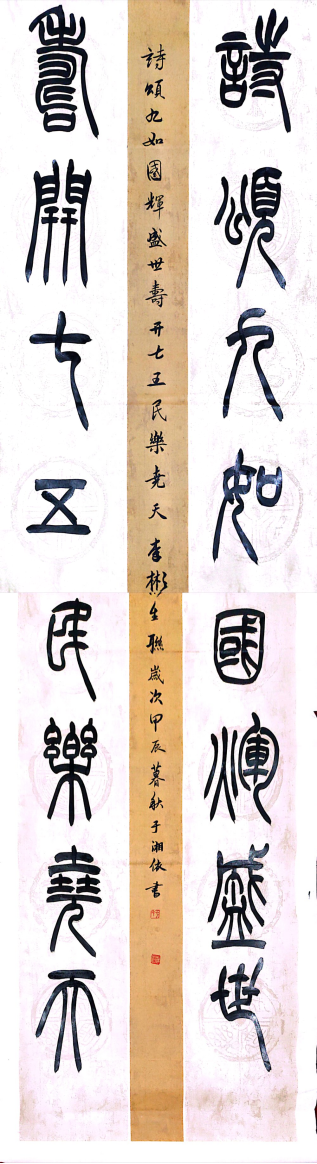 詩頌九如國煇盛世
詩頌九如國輝盛世壽开七五民樂堯天李彬生聯歲次甲辰暮秋于湘依書
壽開七五民樂堯天